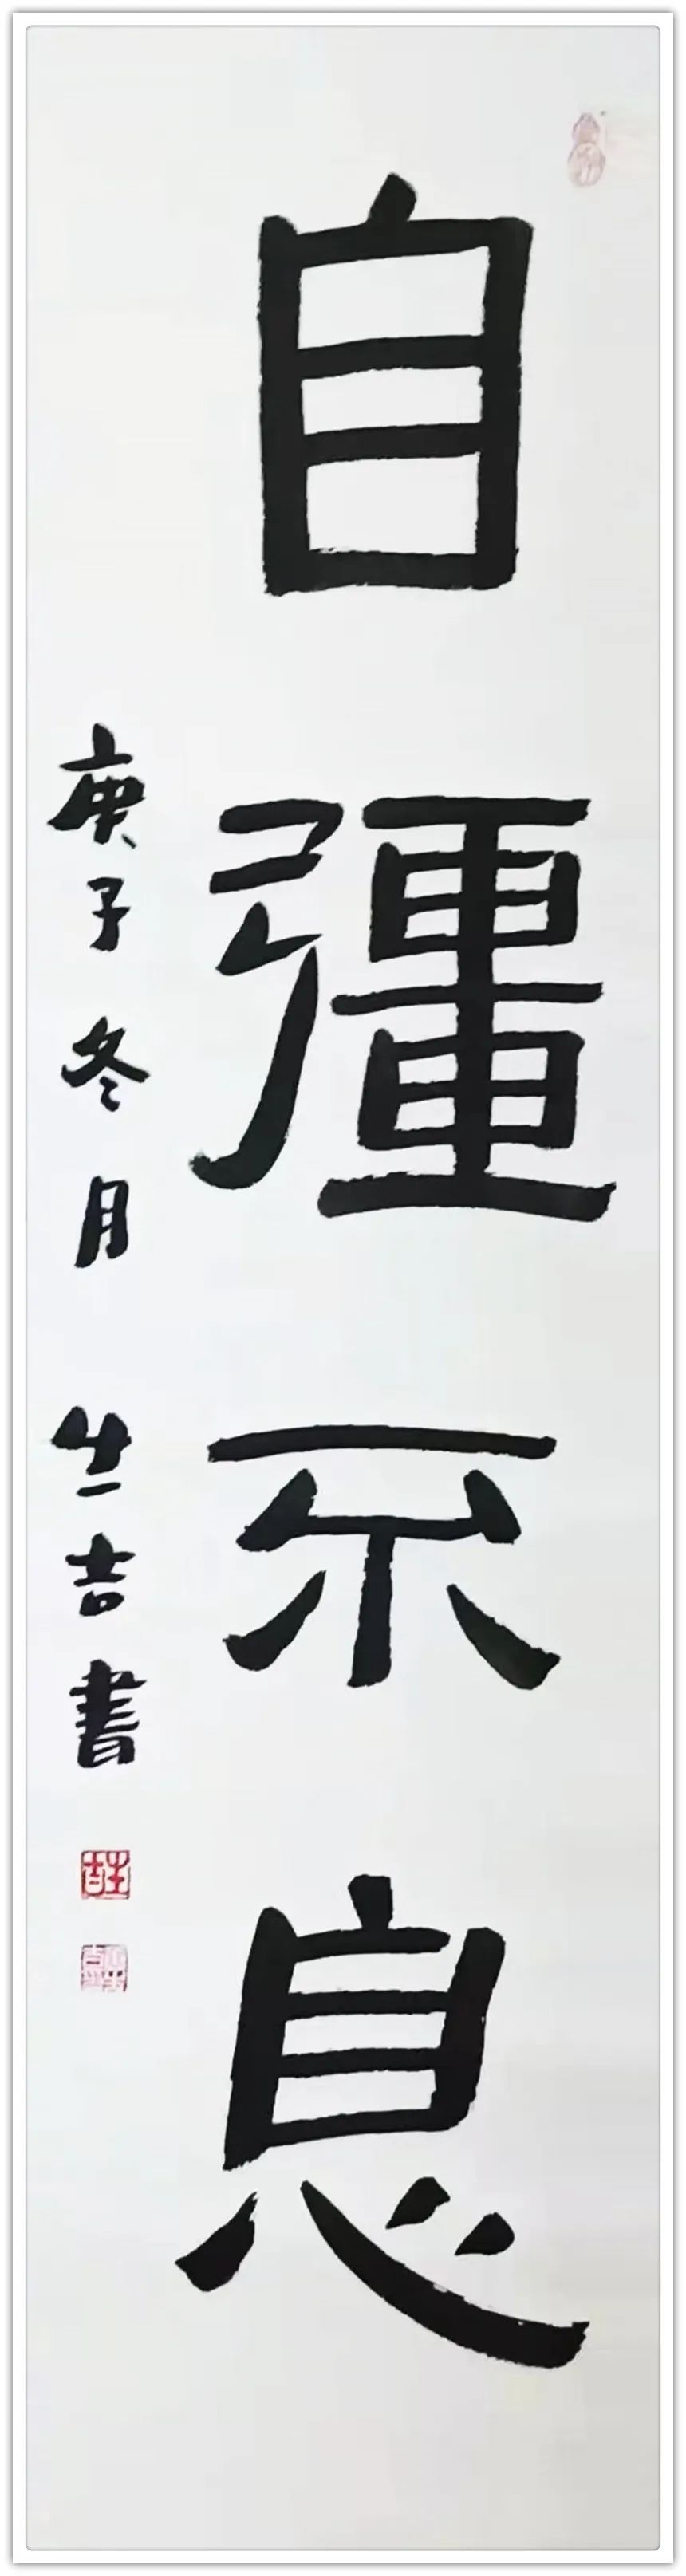 自彊不息
庚子冬月 生吉書